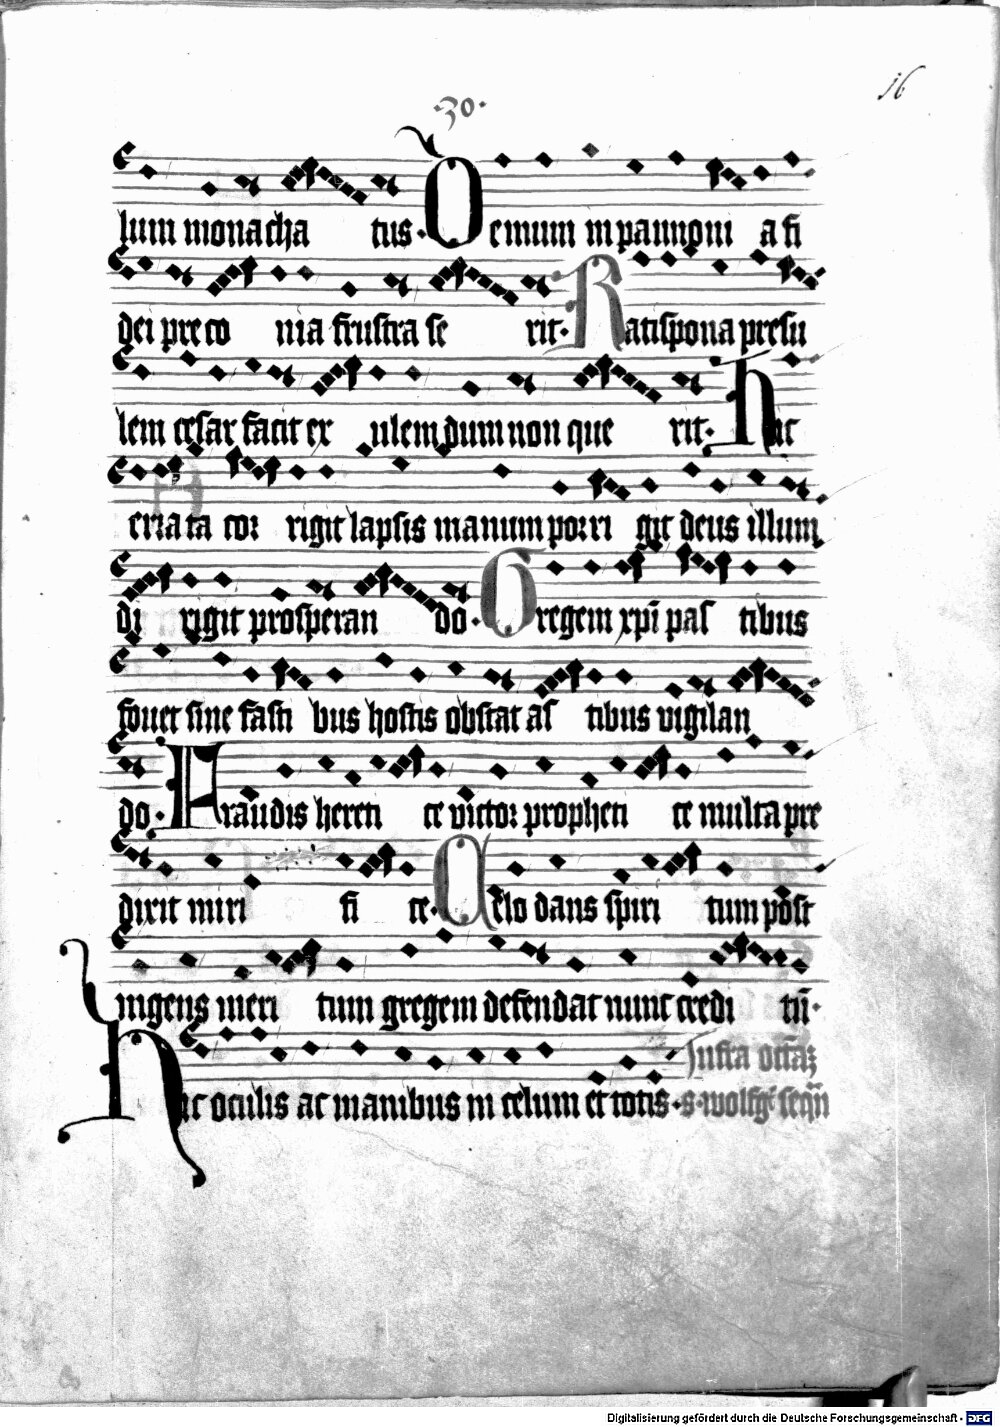 16
·30·
lum monacha tus · Demum in pannoni a fi
dei preco nia frustra se rit · Ratispona presu
lem cesar facit ex ulem dum non que rit · Hic
errata cor rigit lapsis manum porri git deus illum
di rigit prosperan do · Gregem xpi pas tibus
fouet sine fasti bus hostis obstat as tibus vigilan
do · Fraudis hereti ce victor propheti ce multa pre
dixit miri fi ce · Celo dans spiri tum post
ingens meri tum gregem defendat nunc credi tu ·
Infra octaz
Hic oculis ac manibus in celum et totis · s · wolfg seqn
Digitalisierung gefördert durch die Deutsche Forschungsgemeinschaft - DFG